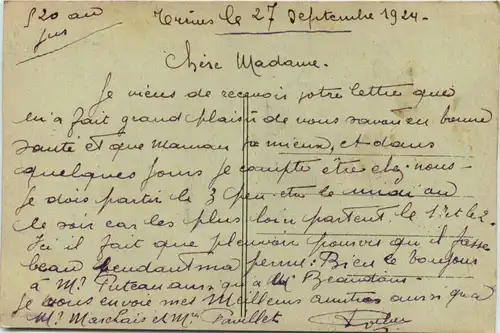 le 27 Septembre 1924.
Chère Madame.
Je viens de recevoir votre lettre que
m'a fait grand plaisir de vous savoir en bonne
santé et que Maman va mieux, et dans
quelques jours je compte être chez nous-
Je dois partir le 3 peut être le midi ou
le soir car les plus loin partent le 1er et le 2.
Ici il fait que pleuvoir pourvu qu'il fasse
beau pendant ma perme: Bien le bonjour
à Mr Puteau ainsi qu'à Mr Beaudoin.
Je vous envoie mes Meilleurs amitiés ainsi qu'à
Mr Marchais et Mme Favillet